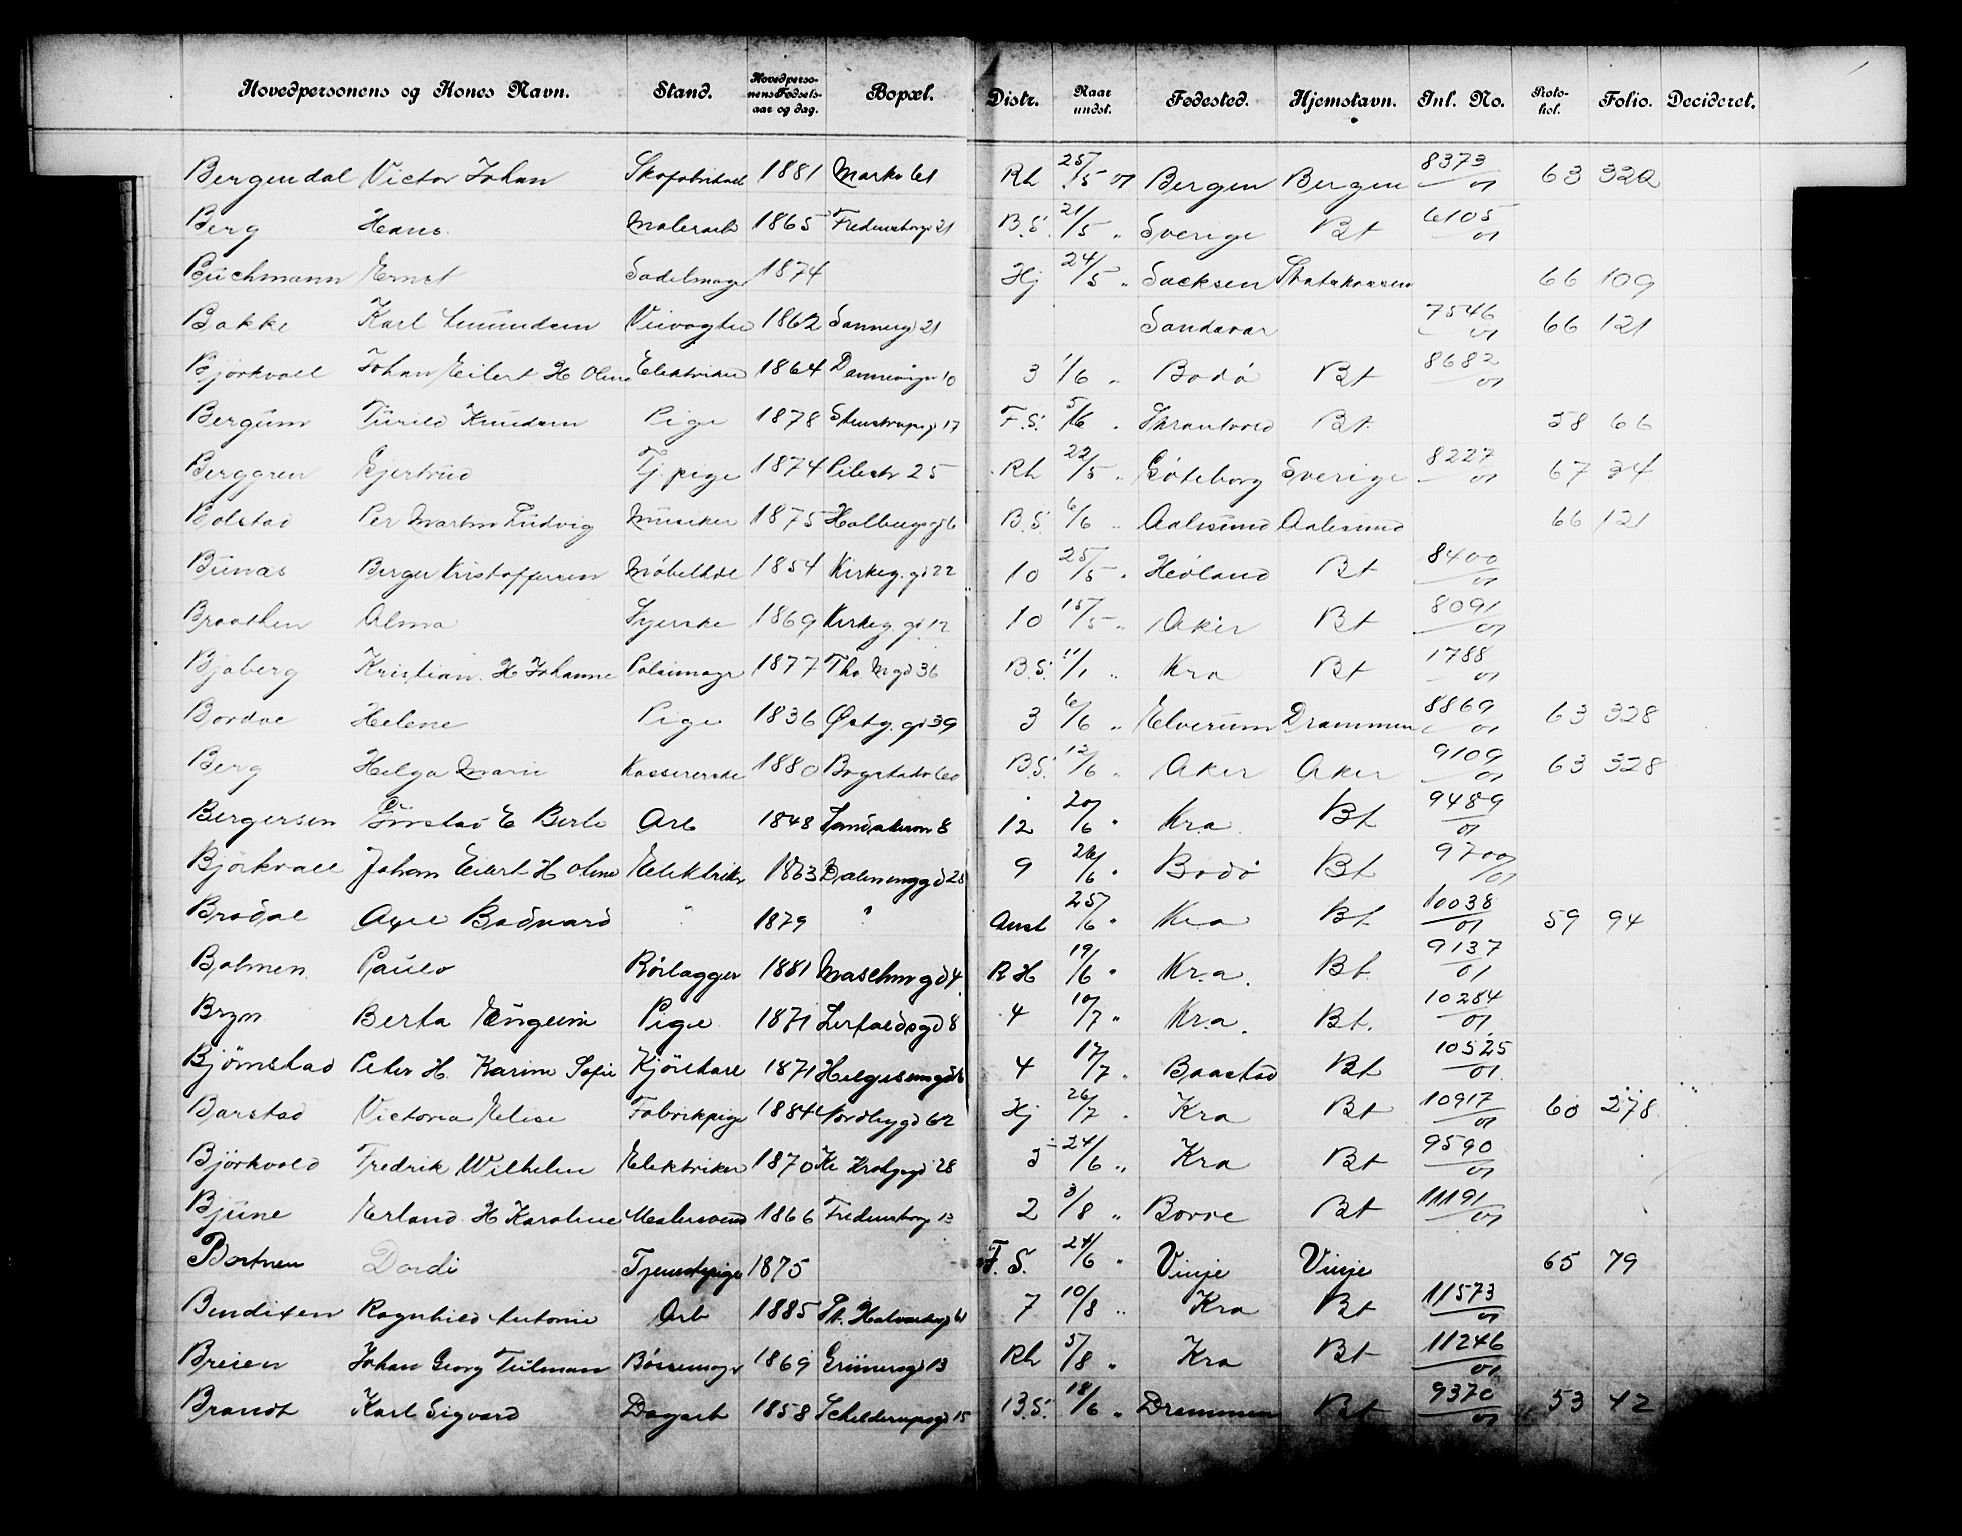 Hovedpersonens og Kones Navn. Stand. Hovedpersonens Fødselsaar og dag. Bopæl. Distr. Naar undst. Fødested. Hjemstavn. Inl. No. Protokol. Folio. Decideret.
Bergendal Victor Johan 1881 Markv 61 Rh 25/5 01 Bergen Bergen 8373/01 63 320
Berg Hans Malerarb 1865 21 B.S. 21/5 „ Sverige Bt 6105/01
Buchmann Ernst Sadelmager 1874 Hj 24/5 „ Sacksen 66 109
Bakke Karl 1862 21 7546/01 66 121
Björkvall Johan Eilert H Oline Elektriker 1864 10 3 1/6 „ Bodö Bt 8682/01
Bergum Turild Knudsen Pige 1878 17 F.S. 5/6 „ Bt 58 66
Berggren Gjertrud Tj. pige 1874 Pilestr 25 Rh 22/5 „ Göteborg Sverige 8227/01 67 34
Bolstad Per Martin Ludvig Musiker 1875 Holbergsgd 6 B.S. 6/6 „ Aalesund Aalesund 66 121
Bunæs Berger Kristoffersen 1854 Kirkeg. gd 22 10 25/5 „ Höland Bt 8400/01
Braathen Alma Syerske 1869 Kirkeg. gd 12 10 15/5 „ Aker Bt 8091/01
Bjaberg Kristian H Johanne 1877 Tho Mgd 36 B.S. 11/1 „ Kra Bt 1788/01
Bordoe Helene Pige 1836 Østg. gd 39 3 6/6 „ Elverum Drammen 8869/01 63 328
Berg Helga Marie Kassererske 1880 Bogstadv 60 B.S. 12/6 „ Aker Aker 9109/01 63 328
Bergersen Gustad E Berte Arb 1848 8 12 20/6 „ Kra Bt 9489/01
Björkvall Johan Eilert H Oline Elektriker 1863 28 9 26/6 „ Bodö Bt 9700/01
Brodal Axel Bodvard „ 1879 „ Anst 25/6 „ Kra Bt 10038/01 59 94
Bolmen Paulo Rörlægger 1881 Maschin gd 4 R H 19/6 „ Kra. Bt. 9137/01
Bryn Berta Eugenie Pige 1871 8 4 10/7 „ Kra. Bt. 10284/01
Bjørnstad Peter H. Karine Sofie Kjörekarl 1871 Helgesensgd 4 17/7 „ Baastad Bt 10525/01
Barstad Victoria Elise Fabrikpige 1884 Nordbygd 62 Hj 26/7 „ Kra Bt 10917/01 60 278
Björkvold Fredrik Wilhelm Elektriker 1870 28 24/6 „ Kra Bt 9590/01
Bjune Erland H Karoline Malersvend 1866 13 2 3/8 „ Borre Bt 11191/01
Bortnen Dordi Tjenestepige 1875 F. S. 24/6 „ Vinje Vinje 65 79
Bendixen Ragnhild Antonie Arb 1885 St. Halvardsgd 61 7 10/8 „ Kra Bt 11573/01
Breien Johan Georg Tulman Bössemager 1869 Grünersgd 13 Rh 5/8 „ Kra Bt 11246/01
Brandt Karl Sigvard Dagarb 1858 Schilderupsgd 15 B.S. 18/6 „ Drammen Bt 9370/01 53 42